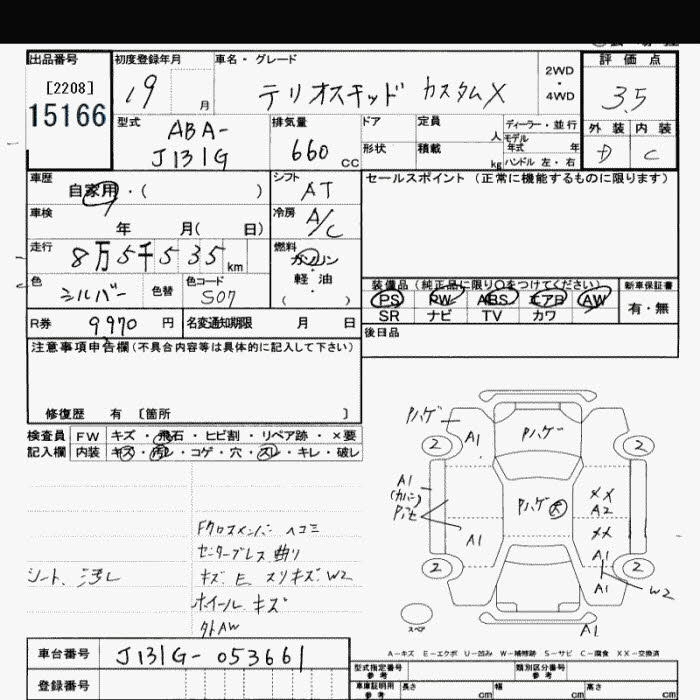 出品番号
[2208]
15166
初度登録年月
19 月
車名・グレード
テリオスキッド カスタムX
2WD
・
4WD
評価点
3.5
外装 内装
D C
型式
ABA-
J131G
排気量
660 CC
ドア
定員 人
形状
積載 kg
ディーラー・並行
モデル
年式 年
ハンドル 左・右
車歴
自家用・( )
シフト
AT
セールスポイント (正常に機能するものに限ります)
車検
年 月( 日)
冷房
A/C
走行
8万5千535km
燃料
ガソリン
軽油
( )
色
シルバー
色替
色コード
S07
装備品(純正品に限り〇をつけてください)
新車保証書
PS PW ABS エアB AW
有・無
SR ナビ TV カワ
R券
9970 円
名変通知期限 月 日
後日品
注意事項申告欄(不具合内容等は具体的に記入して下さい)
修復歴 有 〔箇所 〕
検査員
記入欄
FW キズ・飛石・ヒビ割・リペア跡・×要
内装 キズ・汚レ・コゲ・穴・スレ・キレ・破レ
Pハゲ
A1
Pハゲ
2
2
A1
(カバー)
Pハゲ 大
XX
A2
XX
A1
A1
2
2
A1
W2
スペア
A1
Fクロスメンバー ヘコミ
センターブレス 曲り
シート、汚レ
キズ E スリキズ W2
ホイール キズ
外AW
A-キズ E-エクボ U-凹み W-補修跡 S-サビ C-腐食 XX-交換済
車台番号
J131G-053661
登録番号
型式指定番号
参考
類別区分番号
参考
車庫証明用
参考
長さ cm
幅 cm
高さ cm